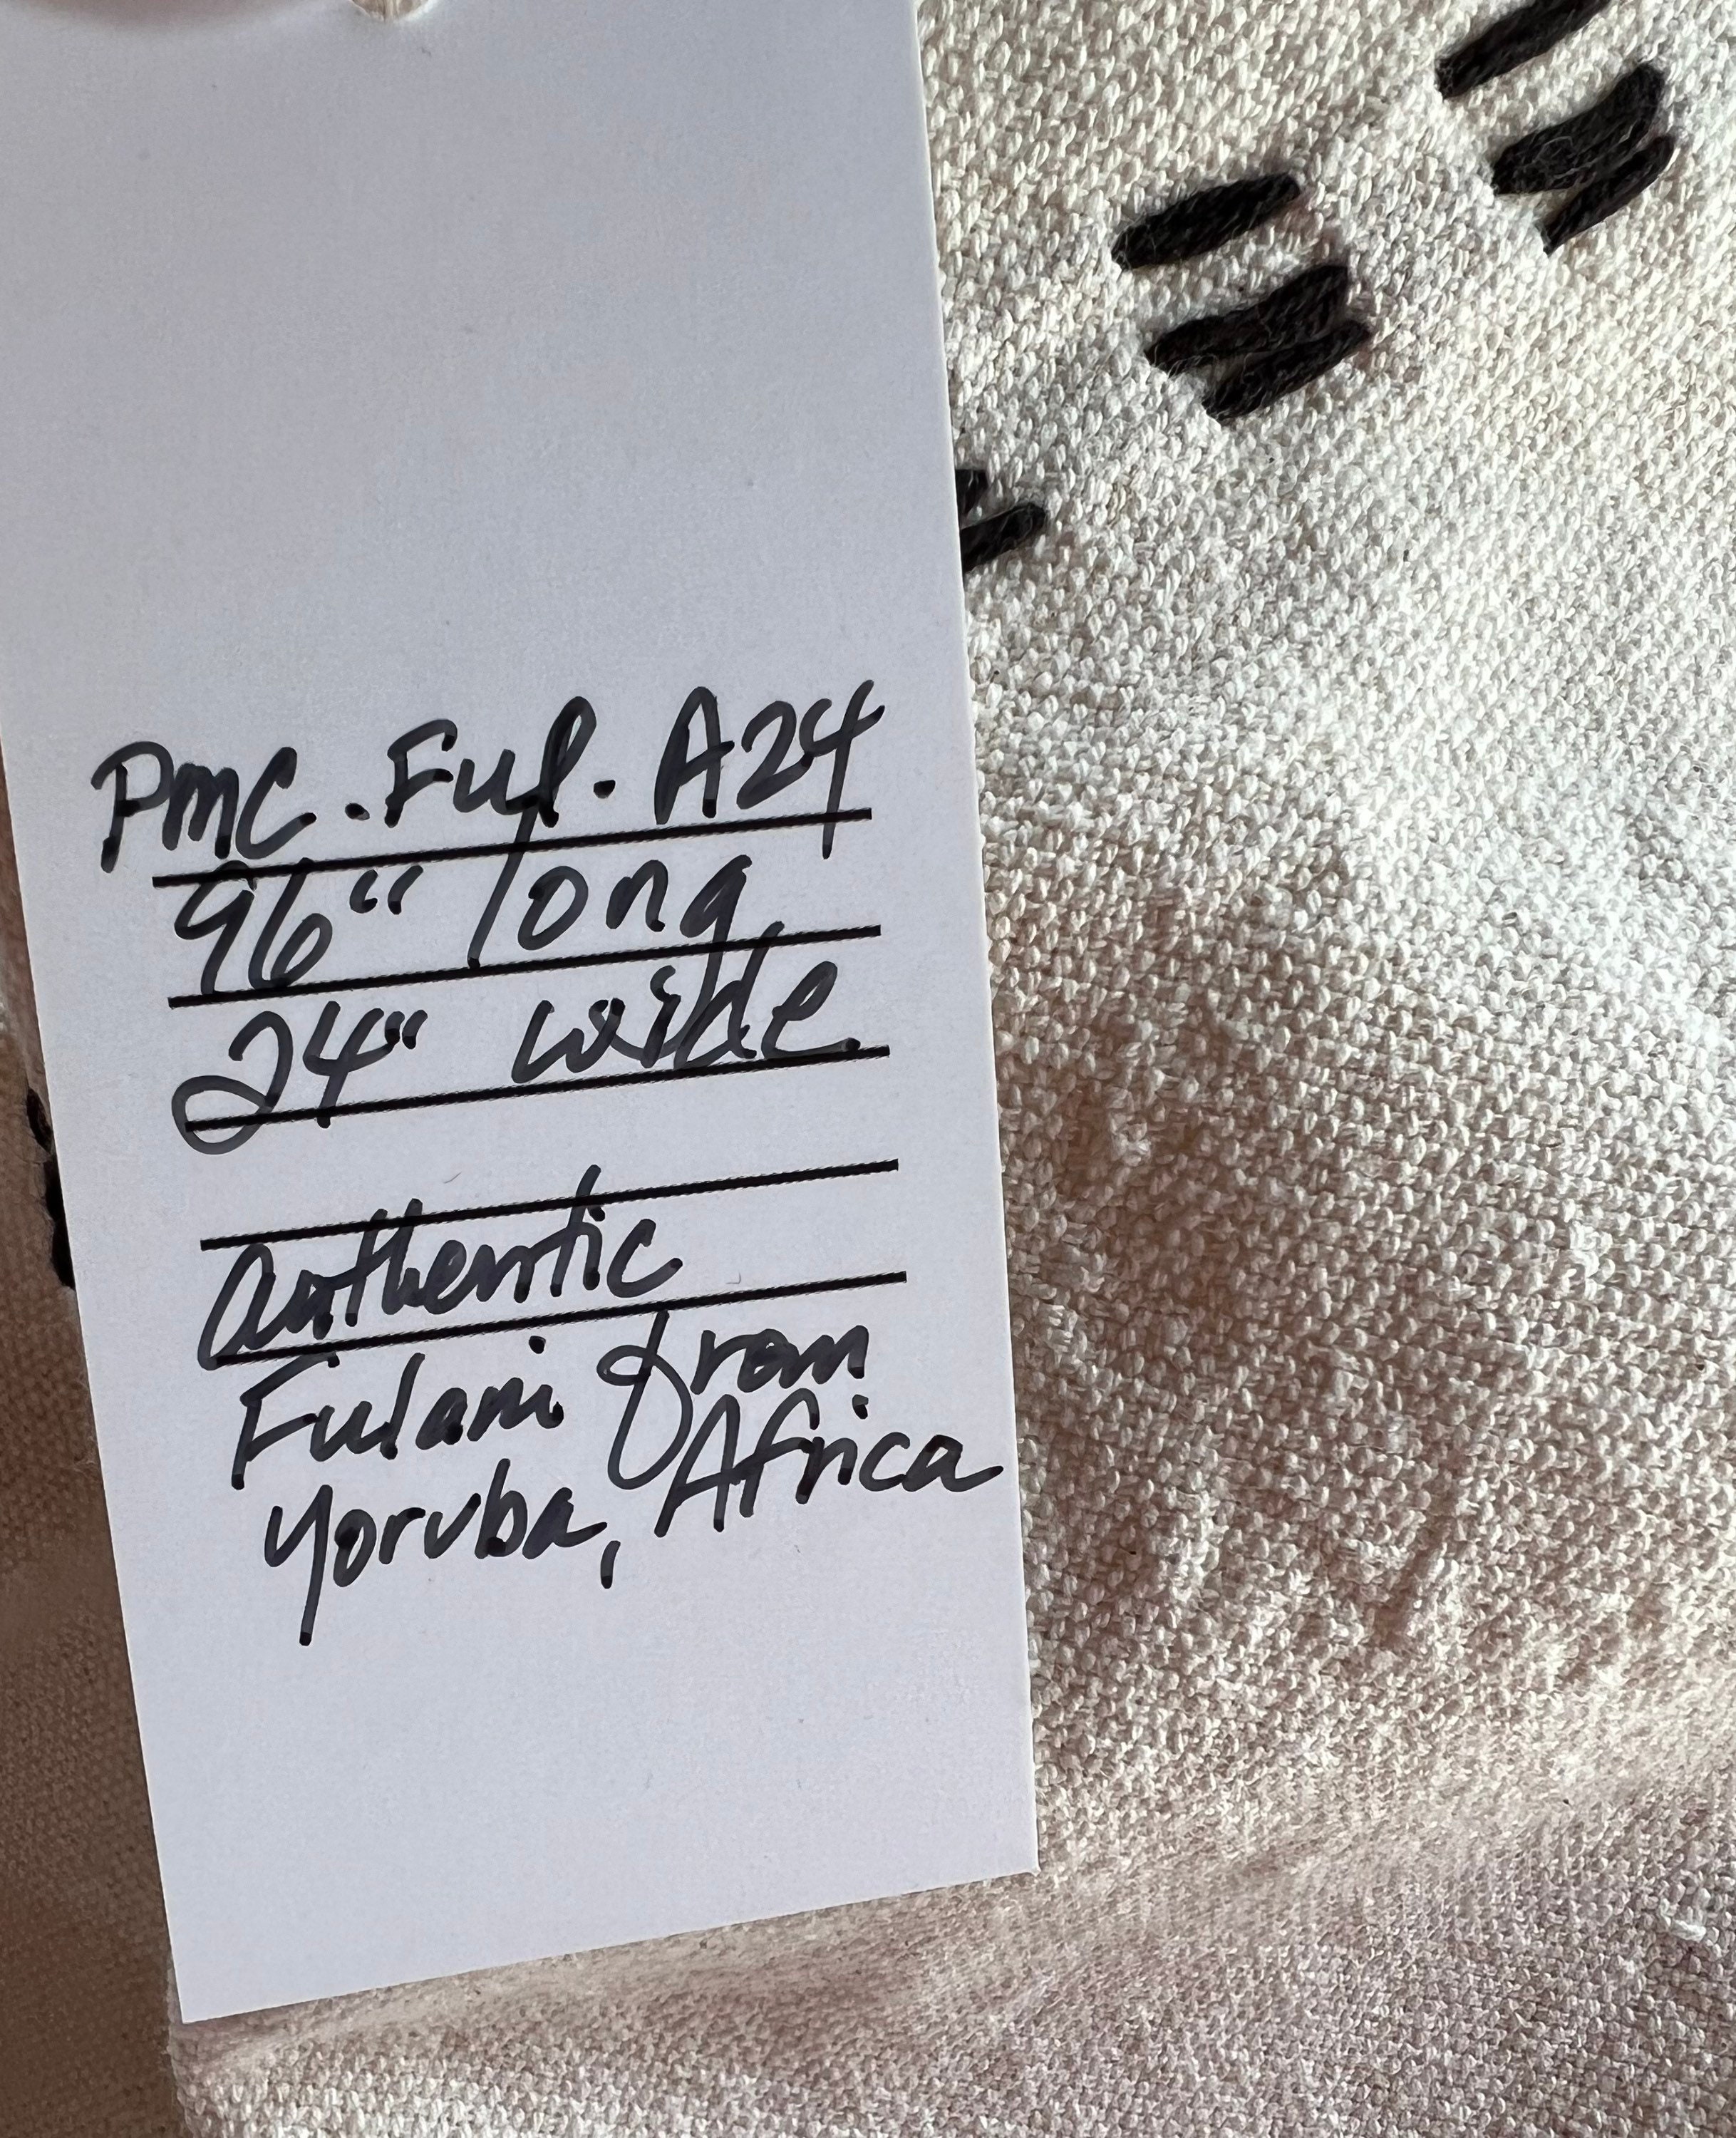 PMC.Ful.A24
96" long
24" wide.
authentic
Fulani from
Yoruba, Africa